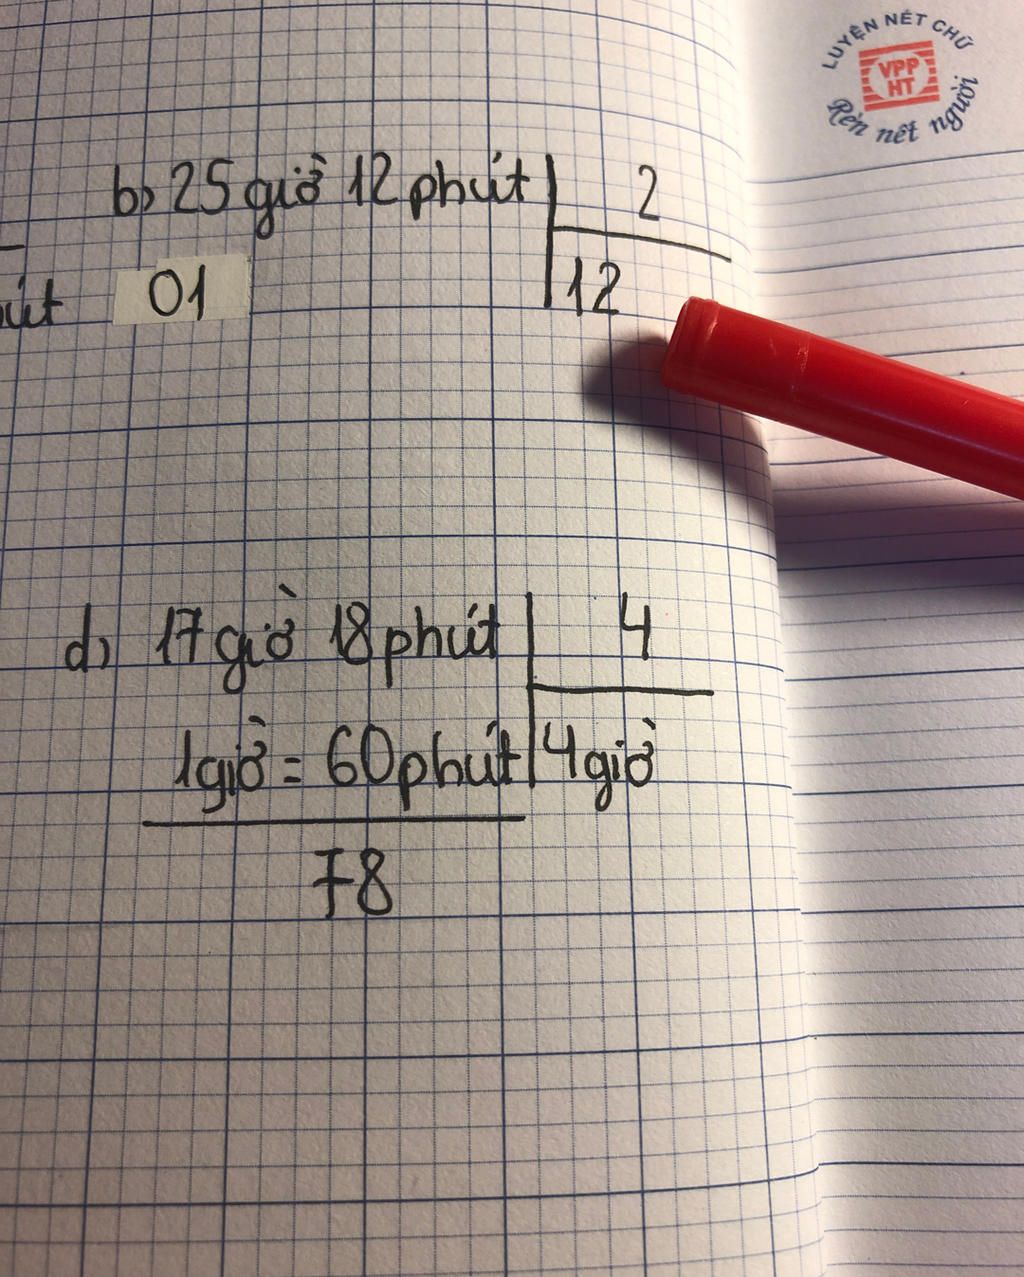 LUYỆN NÉT CHỮ
VPP
HT
Rèn nết người
b) 25 giờ 12 phút 2
01 12
d) 17 giờ 18 phút 4
1giờ = 60 phút 4 giờ
78